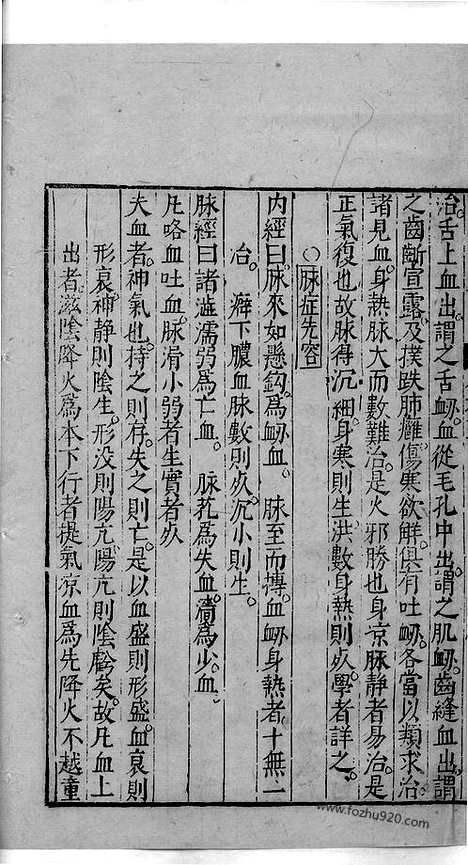 治。舌上血出。謂之舌衂。血從毛孔中出。謂之肌衂。齒縫血出。謂
之齒斷宣露。及撲跌肺癰。傷寒欲解。俱有吐衂。各當以類求治。
諸見血。身熱脉大而數難治。是火邪勝也。身京脉靜者易治。是
正氣復也。故脉得沉細。身寒則生。洪數身熱則死。學者詳之。
○脉症先容
內經曰。脉來如懸鈎。爲衂血。 脉至而搏。血衂身熱者。十無一
治。 癖下膿血脉數則死。沉小則生。
脉經曰。諸澁濡弱爲亡血。 脉芤爲失血。濇爲少血。
凡咯血吐血。脉滑小弱者生。實者死
夫血者。神氣也。持之則存。失之則亡。是以血盛則形盛。血衰則
形衰。神靜則陰生。形没則陽亢。陽亢則陰虧矣。故凡血上
出者。滋陰降火爲本。下行者提氣凉血爲先。降火不越童
www.fozhu920.com